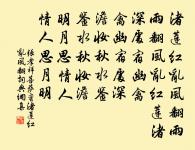 渚蓮紅亂風翻雨
雨翻風亂紅蓮渚
深處宿幽禽
禽幽宿處深
澹妝秋水鑒
鑒水秋妝澹
明月思情人
情人思月明
張孝祥菩薩蠻渚蓮紅
亂風翻詞典網書